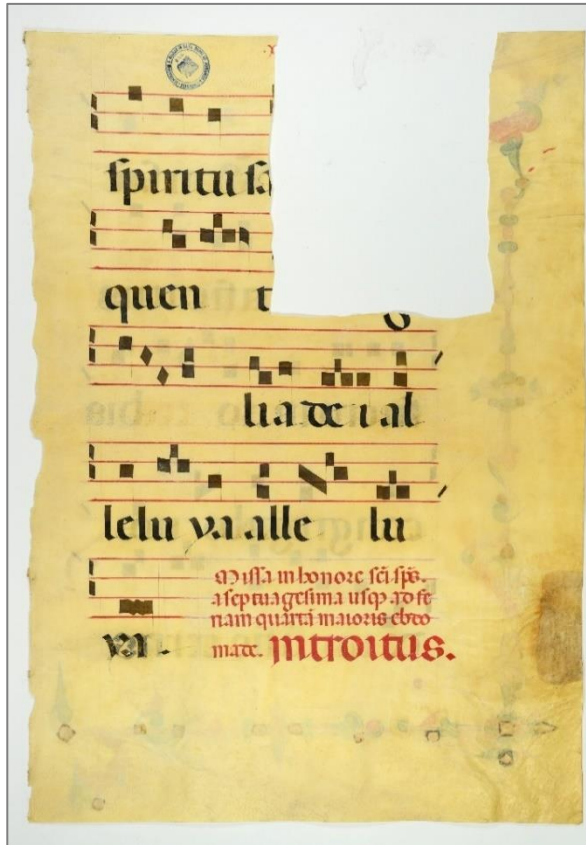 spiritu sa
quen t g
lia dei al
lelu ya alle lu
ya.
Missa in honore sci sps.
a septuagesima usq ad fe
riam quartã maioris ebdo
made. introitus.